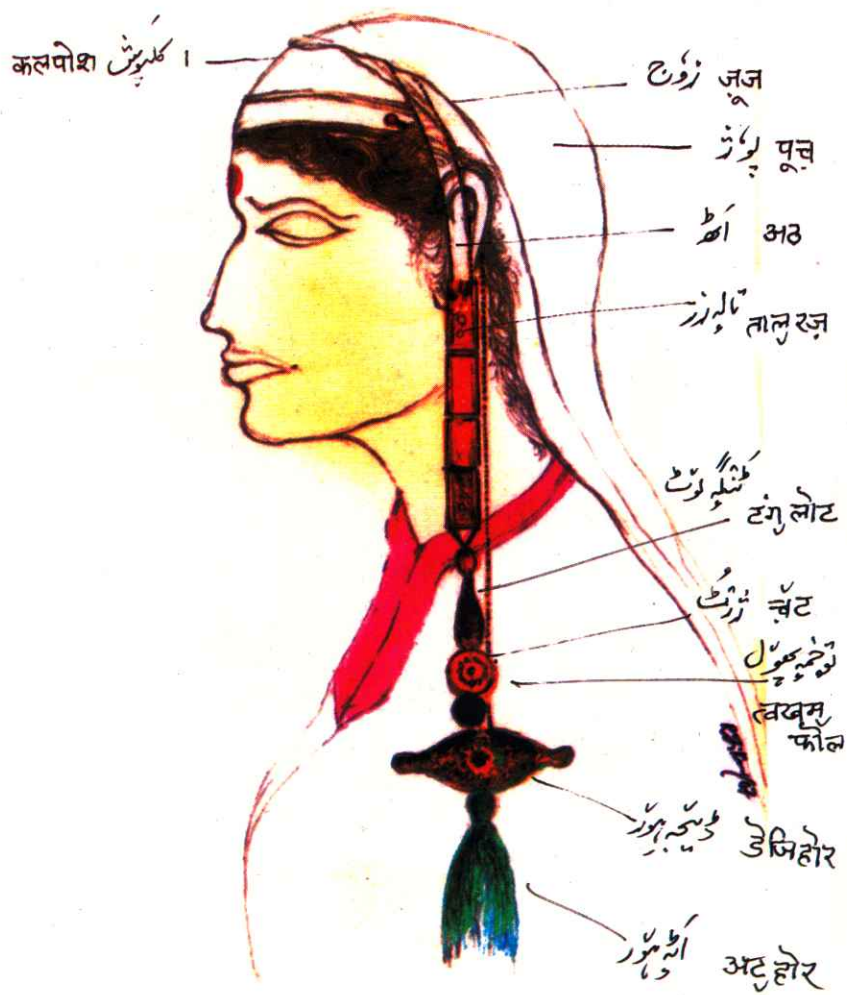 कलपोश کلپوش ا
زوٗج ज़ूज
پوٗژ पूच़
أٹھ अठ
تالہٕ رز तालॖ रज़
ٹنگہٕ لوٚٹ
टंगॖ लोट
ژٔٹ च़ॅट
توٚخمہٕ پھوٚل
त्वख़मॖ
फोल
ڈیٚجہِ ہوٚر डेजिहोर
أٹہٕ ہوٚر अटॖ होर